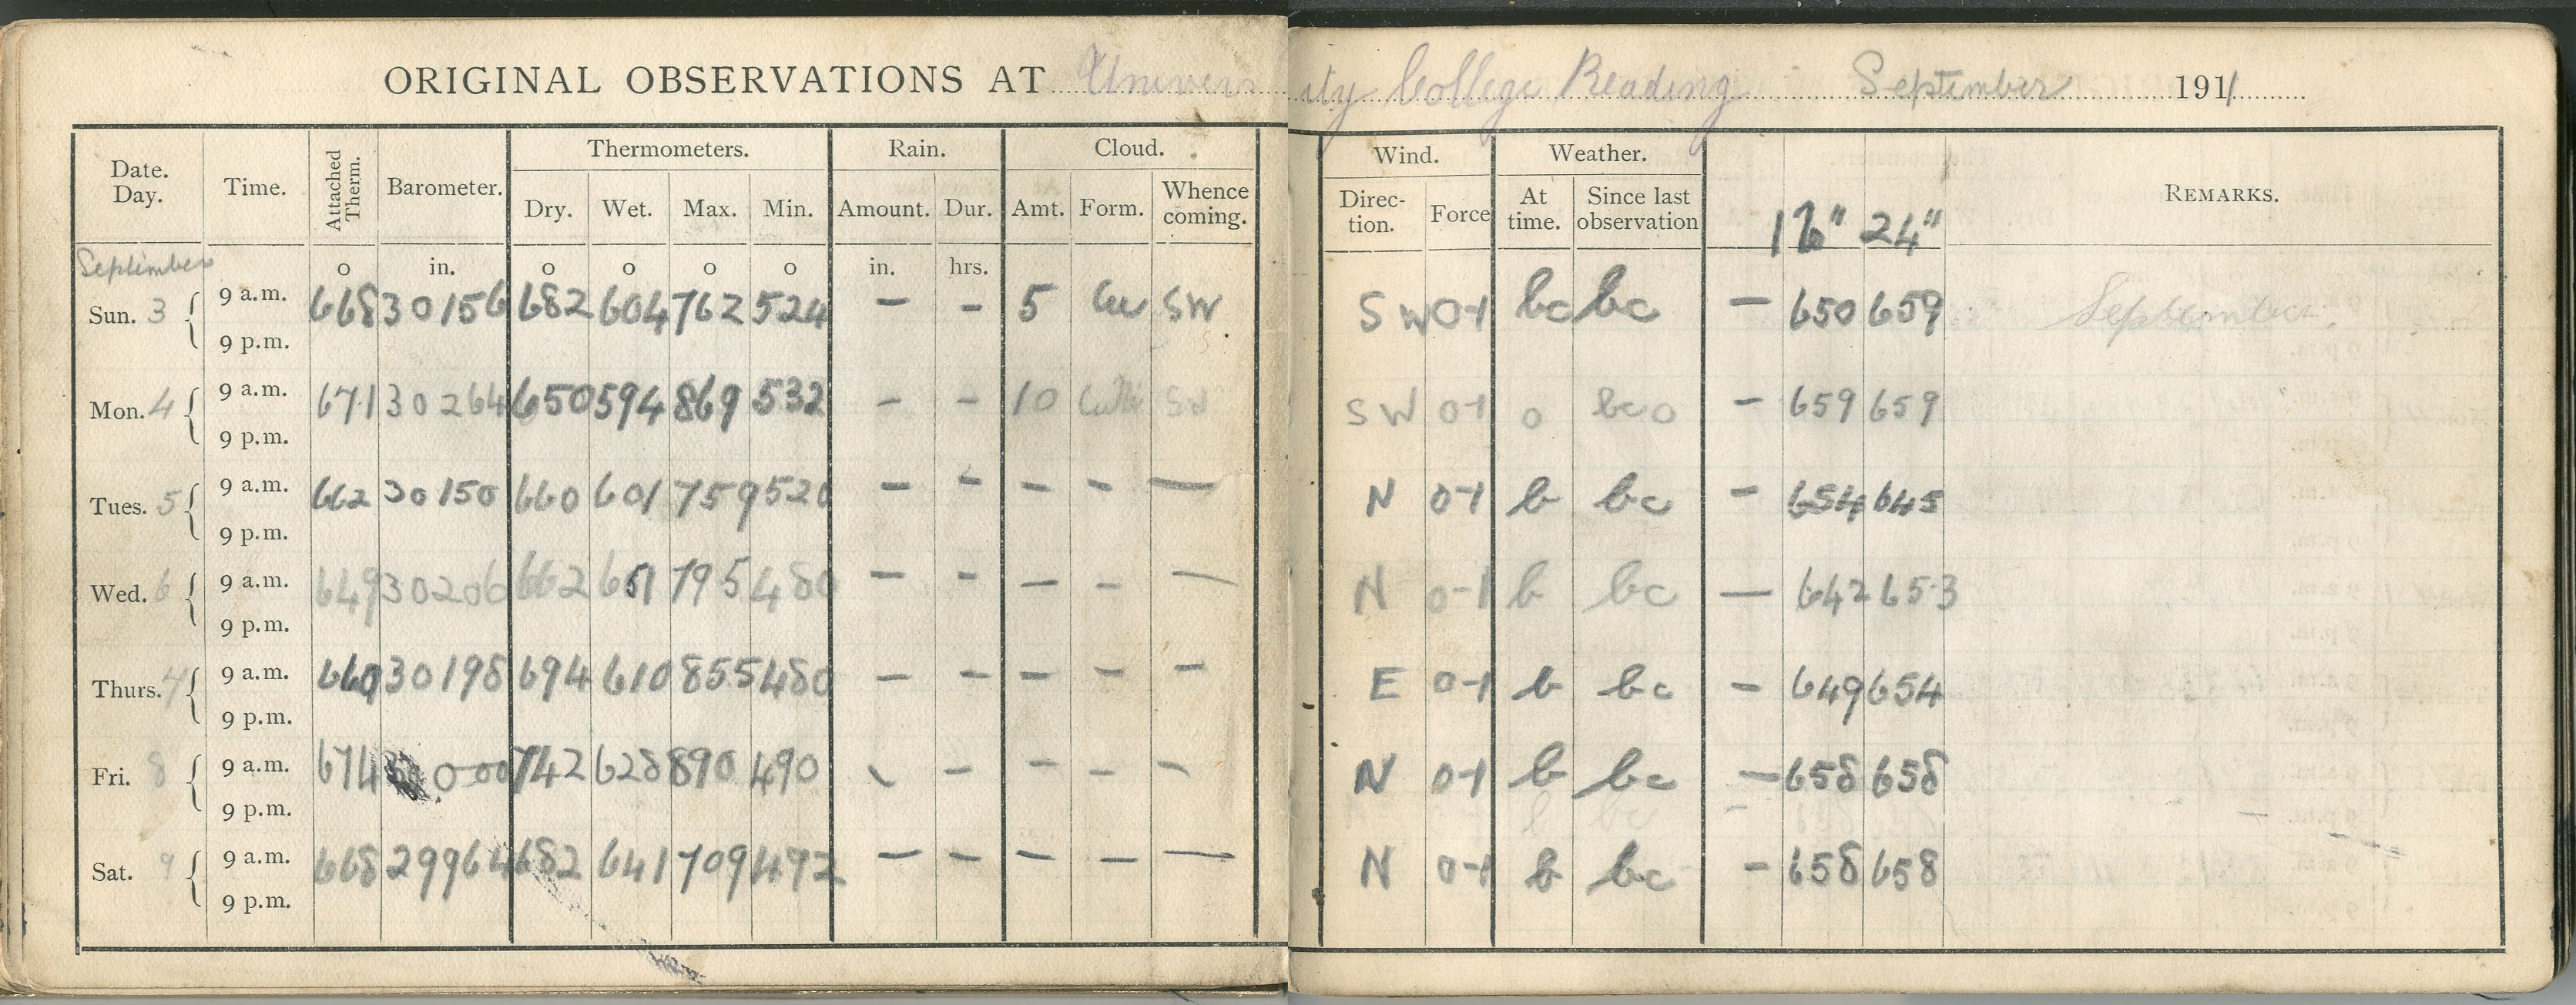 ORIGINAL OBSERVATIONS AT University College Reading September 1911
Date. Day. Time. Attached Therm. Barometer. Thermometers. Rain. Cloud. Wind. Weather. REMARKS.
Dry. Wet. Max. Min. Amount. Dur. Amt. Form. Whence coming. Direc- tion. Force At time. Since last observation 12" 24"
September o in. o o o o in. hrs.
Sun. 3 9 a.m. 668 30156 682 604 762 524 — — 5 Cu SW SW 0-1 bc bc — 650 659 September
9 p.m.
Mon. 4 9 a.m. 671 30264 650 594 869 532 — — 10 SW SW 0-1 o bco — 659 659
9 p.m.
Tues. 5 9 a.m. 662 30150 660 601 759 520 — — — — — N 0-1 b bc — 654 645
9 p.m.
Wed. 6 9 a.m. 649 30206 662 651 795 480 — — — — — N 0-1 b bc — 642 653
9 p.m.
Thurs. 7 9 a.m. 660 30198 694 610 855 480 — — — — — E 0-1 b bc — 649 654
9 p.m.
Fri. 8 9 a.m. 674 30 000 742 628 890 490 — — — — — N 0-1 b bc — 658 658
9 p.m.
Sat. 9 9 a.m. 668 29964 682 641 709 492 — — — — — N 0-1 b bc — 658 658
9 p.m.